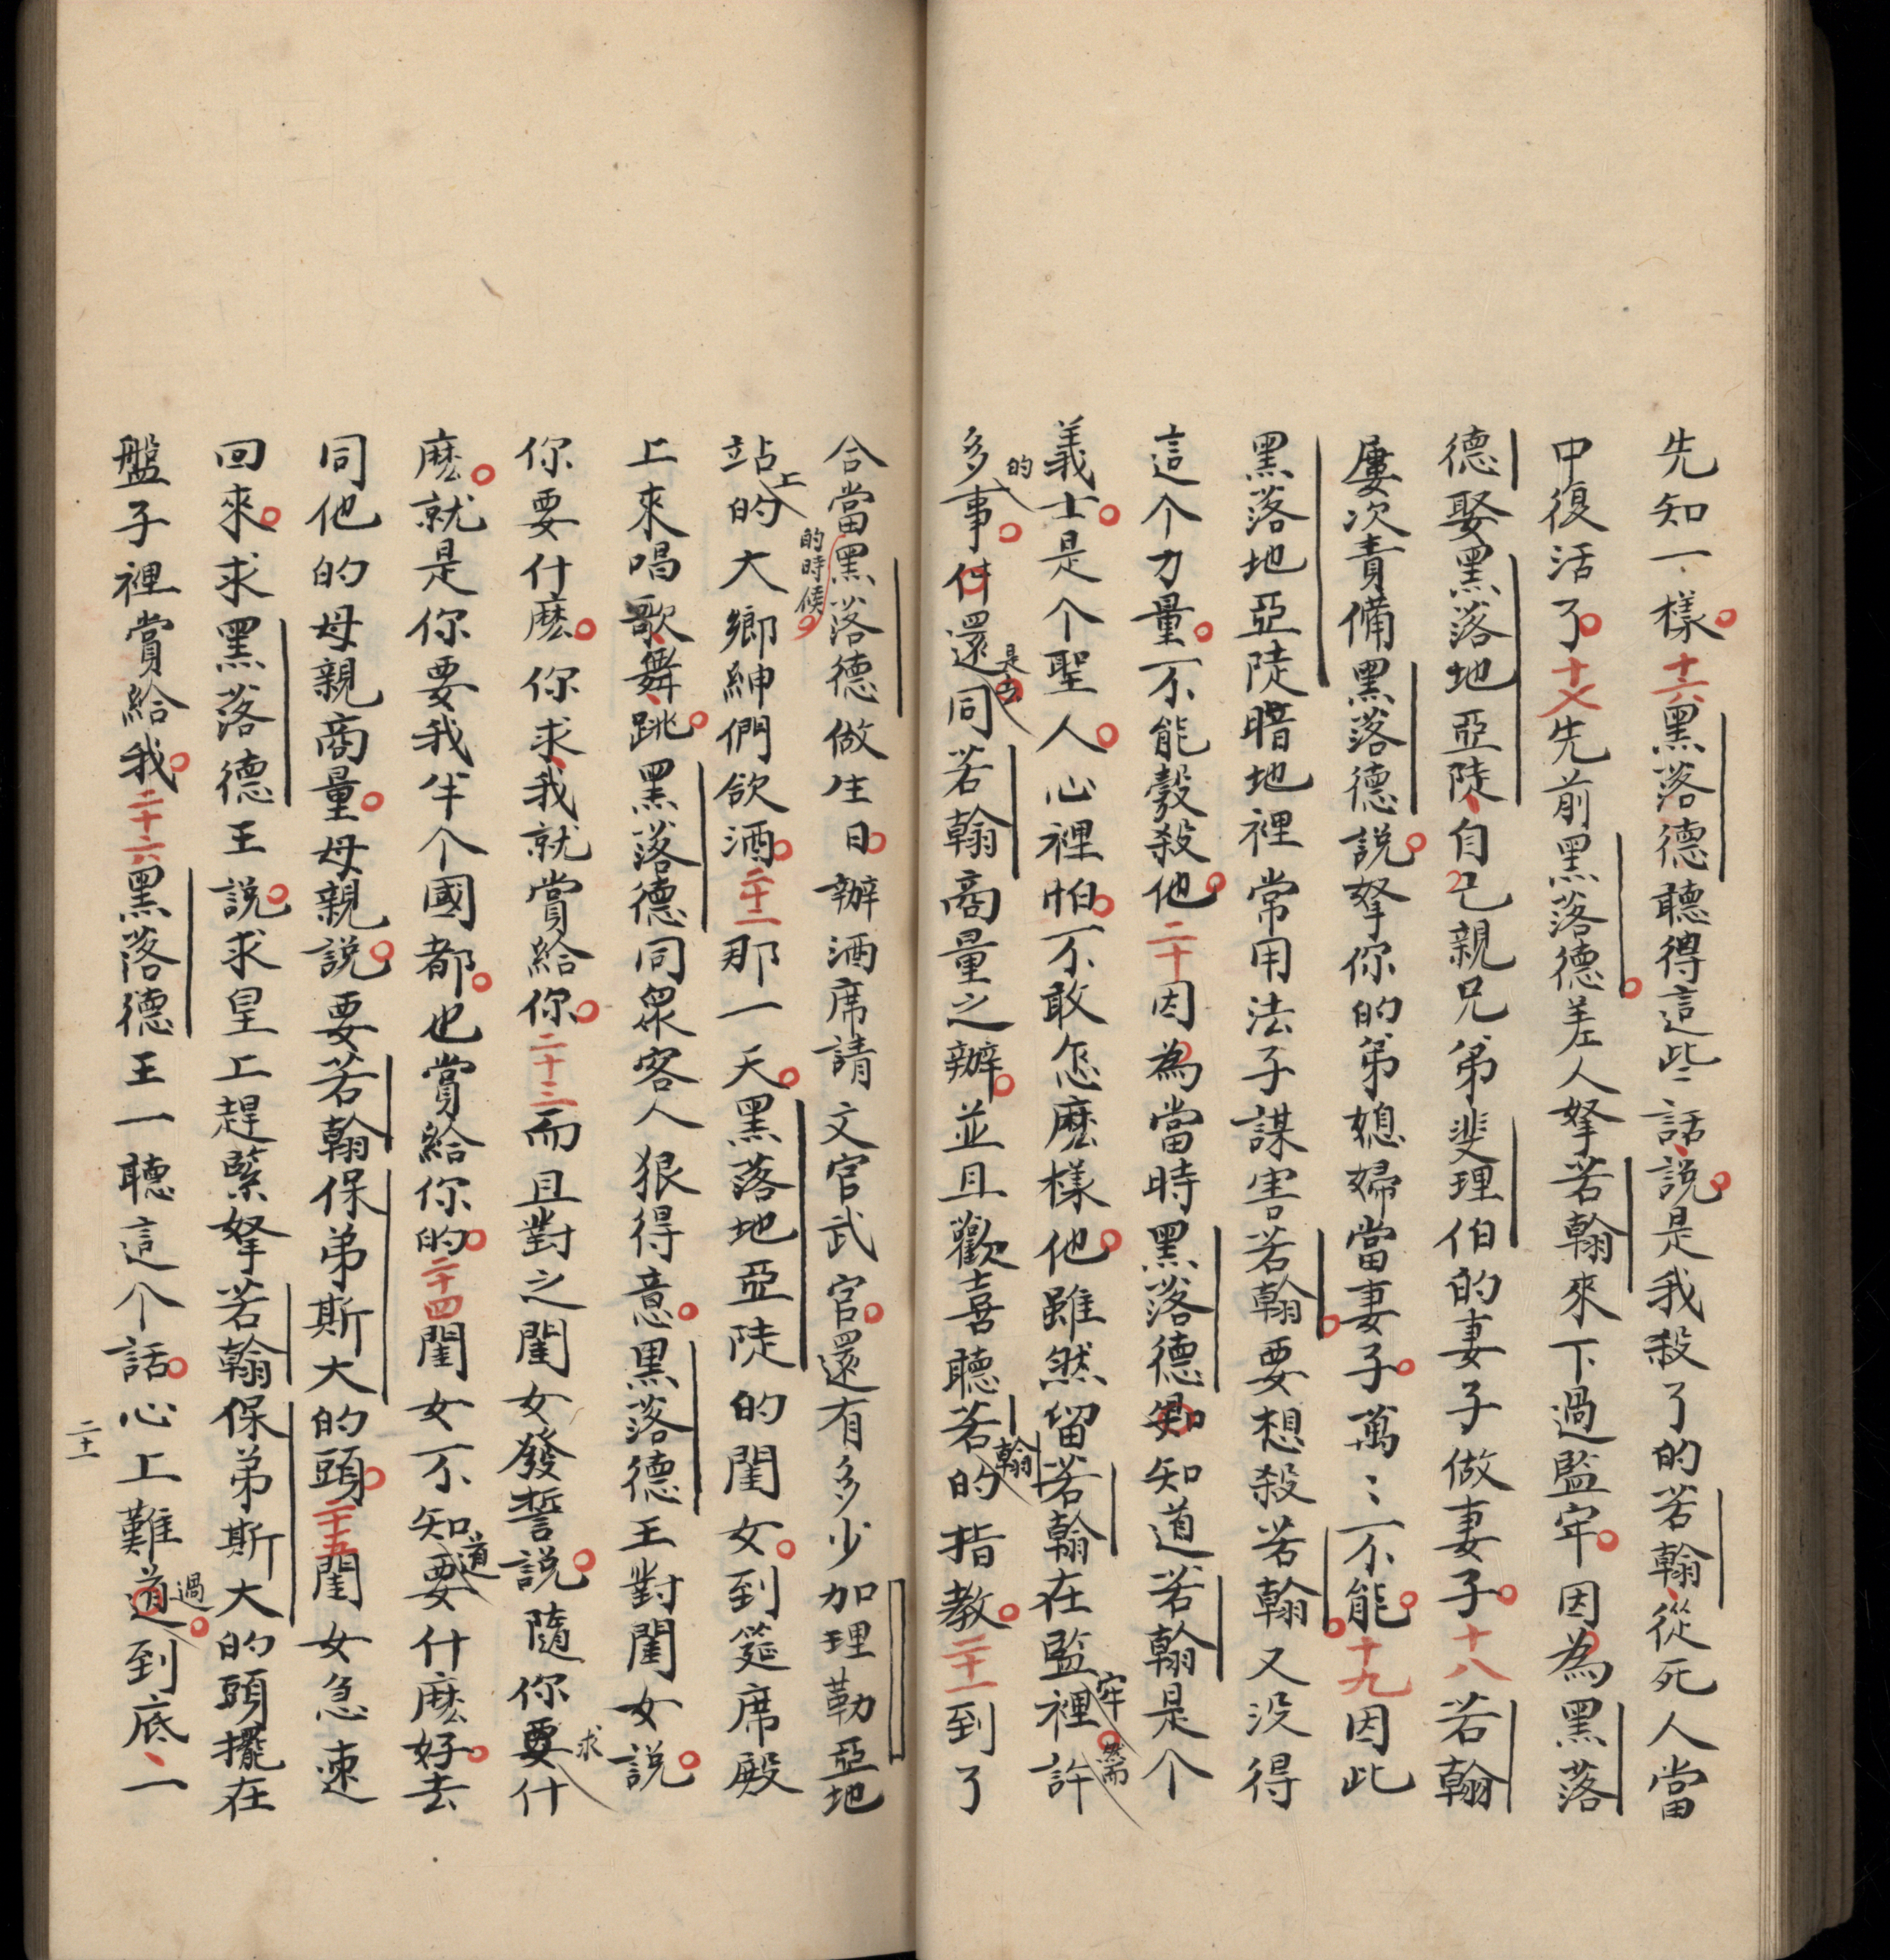 先知一樣十六黑落德聽得這些話說是我殺了的若翰從死人當
中復活了十七先前黑落德差人拏若翰來下過監牢因為黑落
德娶黑落地亞陡自己親兄弟斐理伯的妻子做妻子十八若翰
屢次責備黑落德說拏你的弟媳婦當妻子萬〻不能十九因此
黑落地亞陡暗地裡常用法子謀害若翰要想殺若翰又没得
這个力量不能彀殺他二十因為當時黑落德知道若翰是个
義士是个聖人心裡怕不敢怎麽樣他雖然留若翰在監牢裡然而許
多的事件還是去同若翰商量之辦並且歡喜聽若翰的指教二十一到了
合當黑落德做生日的時候辦酒席請文官武官還有多少加理勒亞地
站上的大鄉紳們飲酒二十二那一天黑落地亞陡的閨女到筵席殿
上來唱歌舞跳黑落德同眾客人狠得意黑落德王對閨女說
你要什麽你求我就賞給你二十三而且對之閨女發誓說隨你要求什
麽就是你要我半个國都也賞給你的二十四閨女不知道要什麽好去
同他的母親商量母親說要若翰保弟斯大的頭二十五閨女急速
回來求黑落德王說求皇上趕緊拏若翰保弟斯大的頭擺在
盤子裡賞給我二十六黑落德王一聽這个話心上難過到底一
二十一